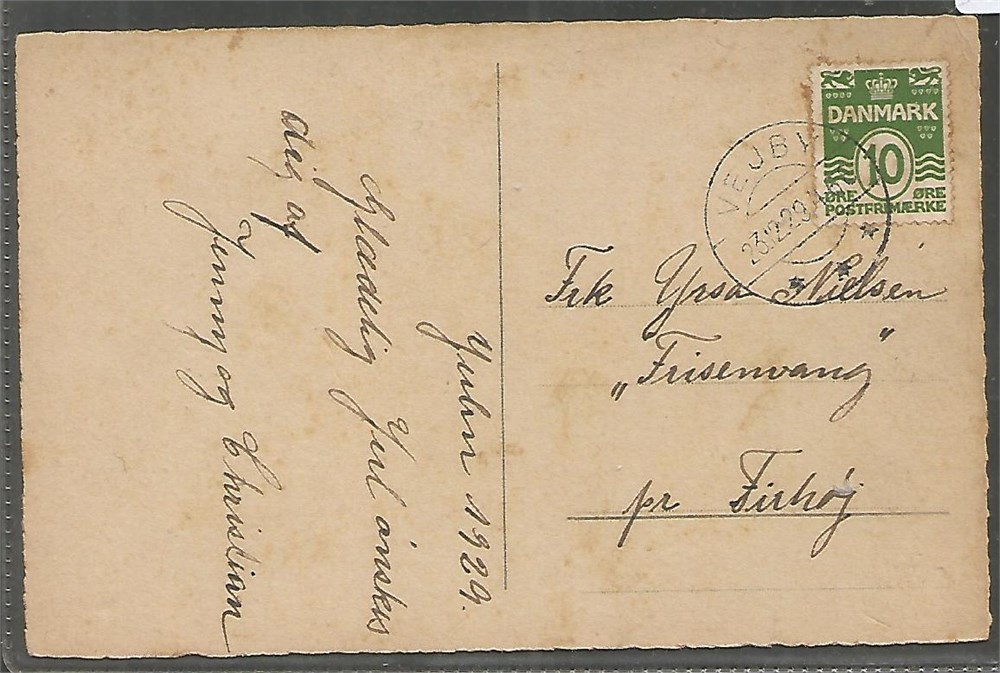 Julen 1929.
Glædelig Jul ønskes
dig af
Jenny og Christian
DANMARK
10
ØRE ØRE
POSTFRIMÆRKE
VEJBY
23.12.29
Frk Yrsa Nielsen
"Frisenvang"
pr Firhøj